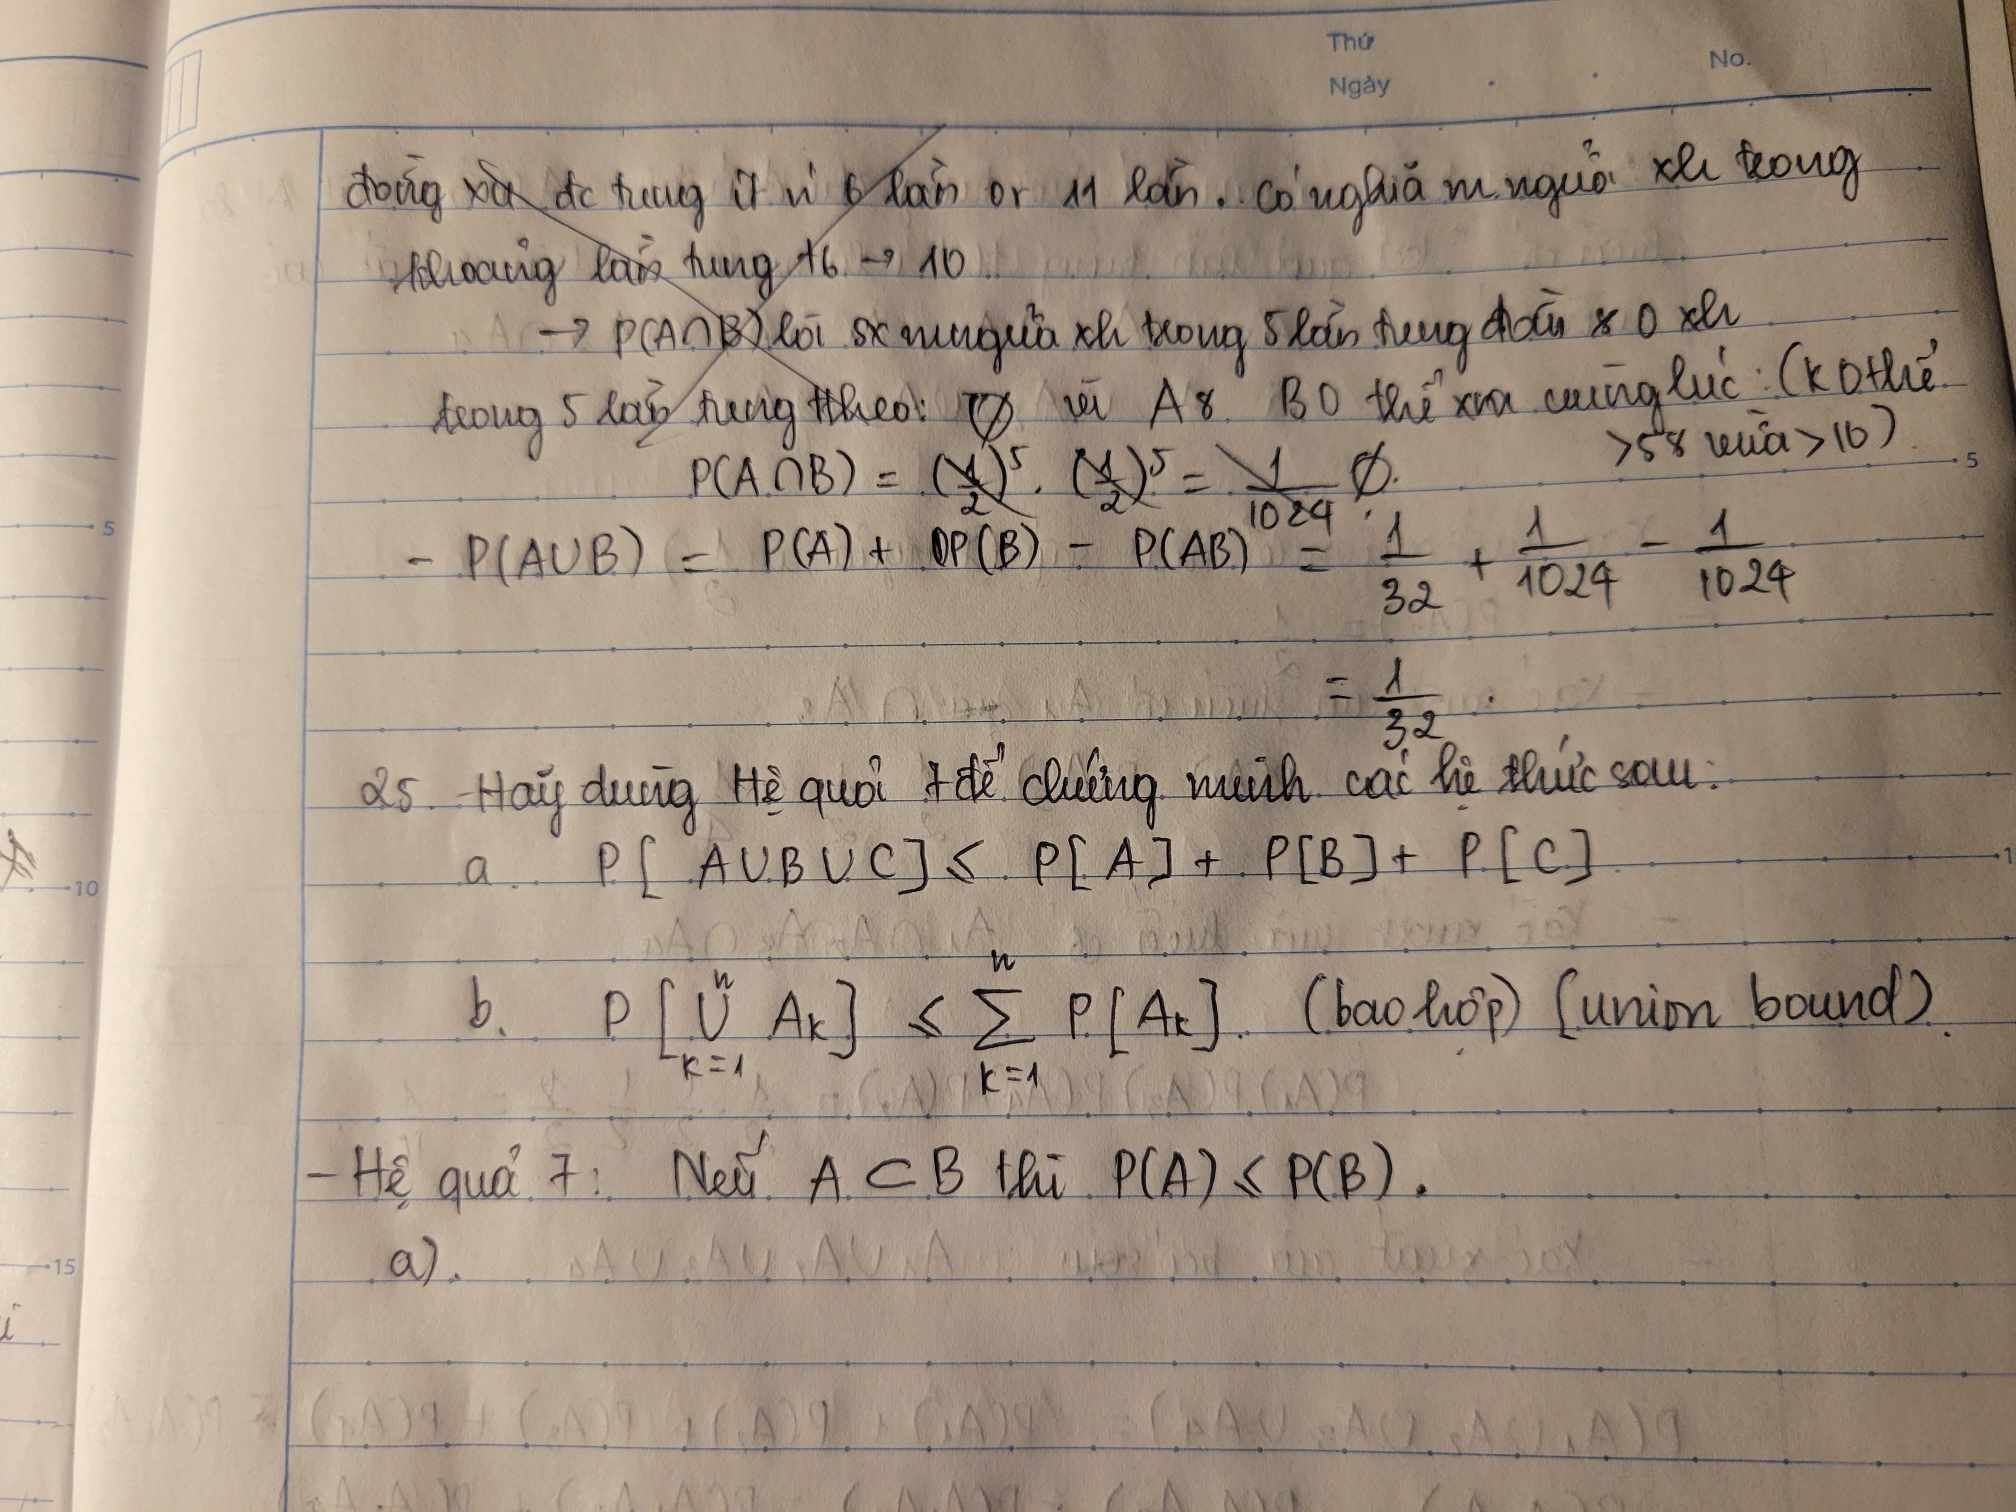 Thứ
Ngày
No.
đồng xu đc tung ít n 6 lần or 11 lần. Có nghĩa m.ngửa xh trong
khoảng lần tung t6 → 10
→ P(A∩B) là sx m.ngửa xh trong 5 lần tung đầu & 0 xh
trong 5 lần tung theo: ∅ vì A & B 0 thể xra cùng lúc : (k 0 thể
>5 & vừa >10)
P(A∩B) = (1/2)^5 . (1/2)^5 = 1/1024 ∅.
- P(A∪B) = P(A) + P(B) - P(AB) = 1/32 + 1/1024 - 1/1024
= 1/32
25. Hãy dùng Hệ quả 7 để chứng minh các hệ thức sau:
a. P[A∪B∪C] ≤ P[A] + P[B] + P[C]
b. P[⋃_{k=1}^{n} A_k] ≤ ∑_{k=1}^{n} P[A_k]. (bao hợp) (union bound).
- Hệ quả 7: Nếu A ⊂ B thì P(A) ≤ P(B).
a).
5
10
15
5